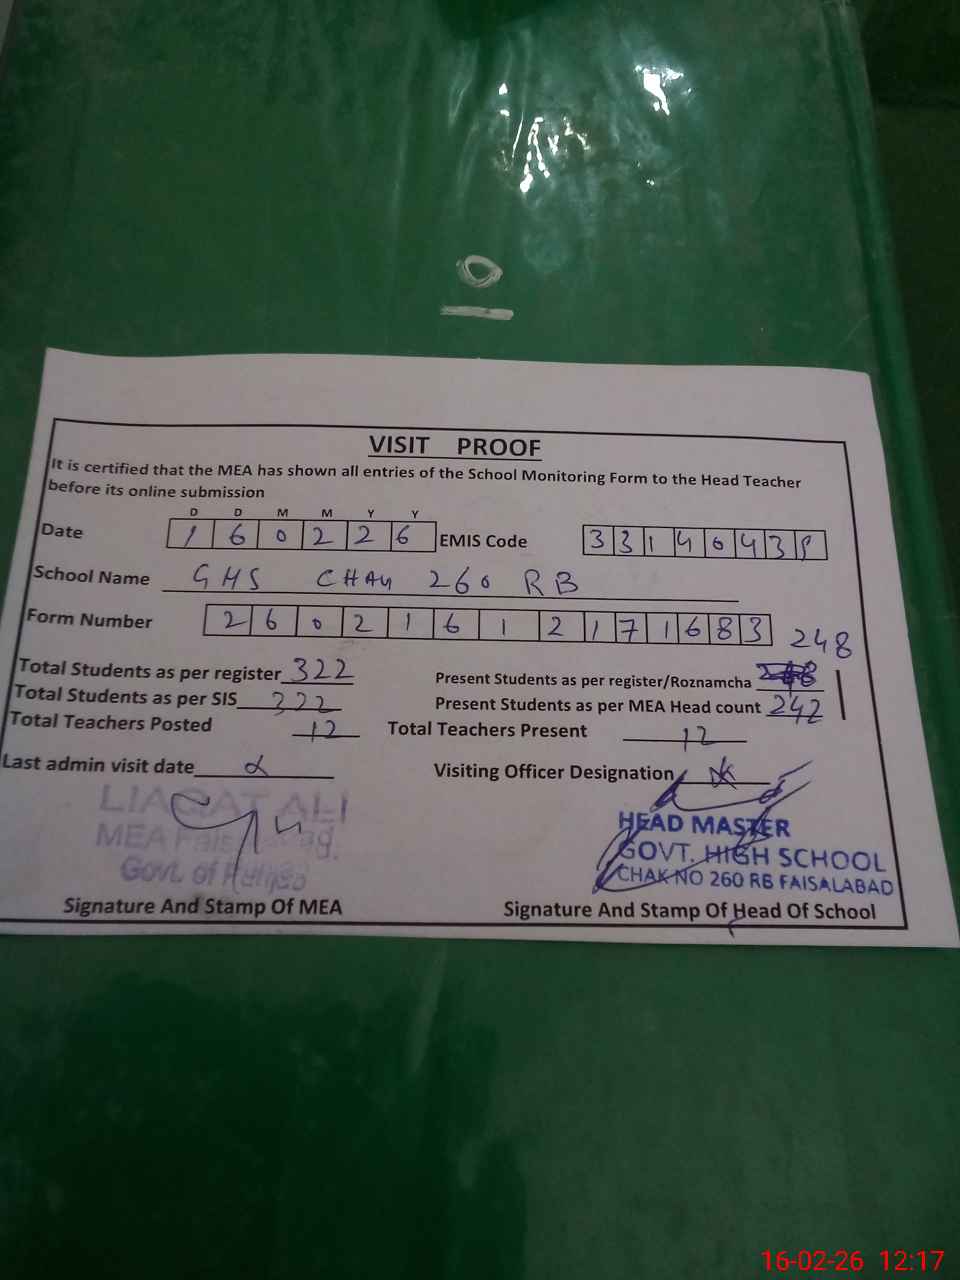 VISIT PROOF
It is certified that the MEA has shown all entries of the School Monitoring Form to the Head Teacher
before its online submission
D D M M Y Y
Date 1 6 0 2 2 6 EMIS Code 3 3 1 4 0 4 3
School Name GHS CHAK 260 RB
Form Number 2 6 0 2 1 6 1 2 1 7 1 6 8 3
248
Total Students as per register 322 Present Students as per register/Roznamcha
Total Students as per SIS 322 Present Students as per MEA Head count 242
Total Teachers Posted 12 Total Teachers Present 12
Last admin visit date Visiting Officer Designation
LIAQAT ALI
MEA
Govt. of
HEAD MASTER
GOVT. HIGH SCHOOL
CHAK NO 260 RB FAISALABAD
Signature And Stamp Of MEA Signature And Stamp Of Head Of School
16-02-26 12:17